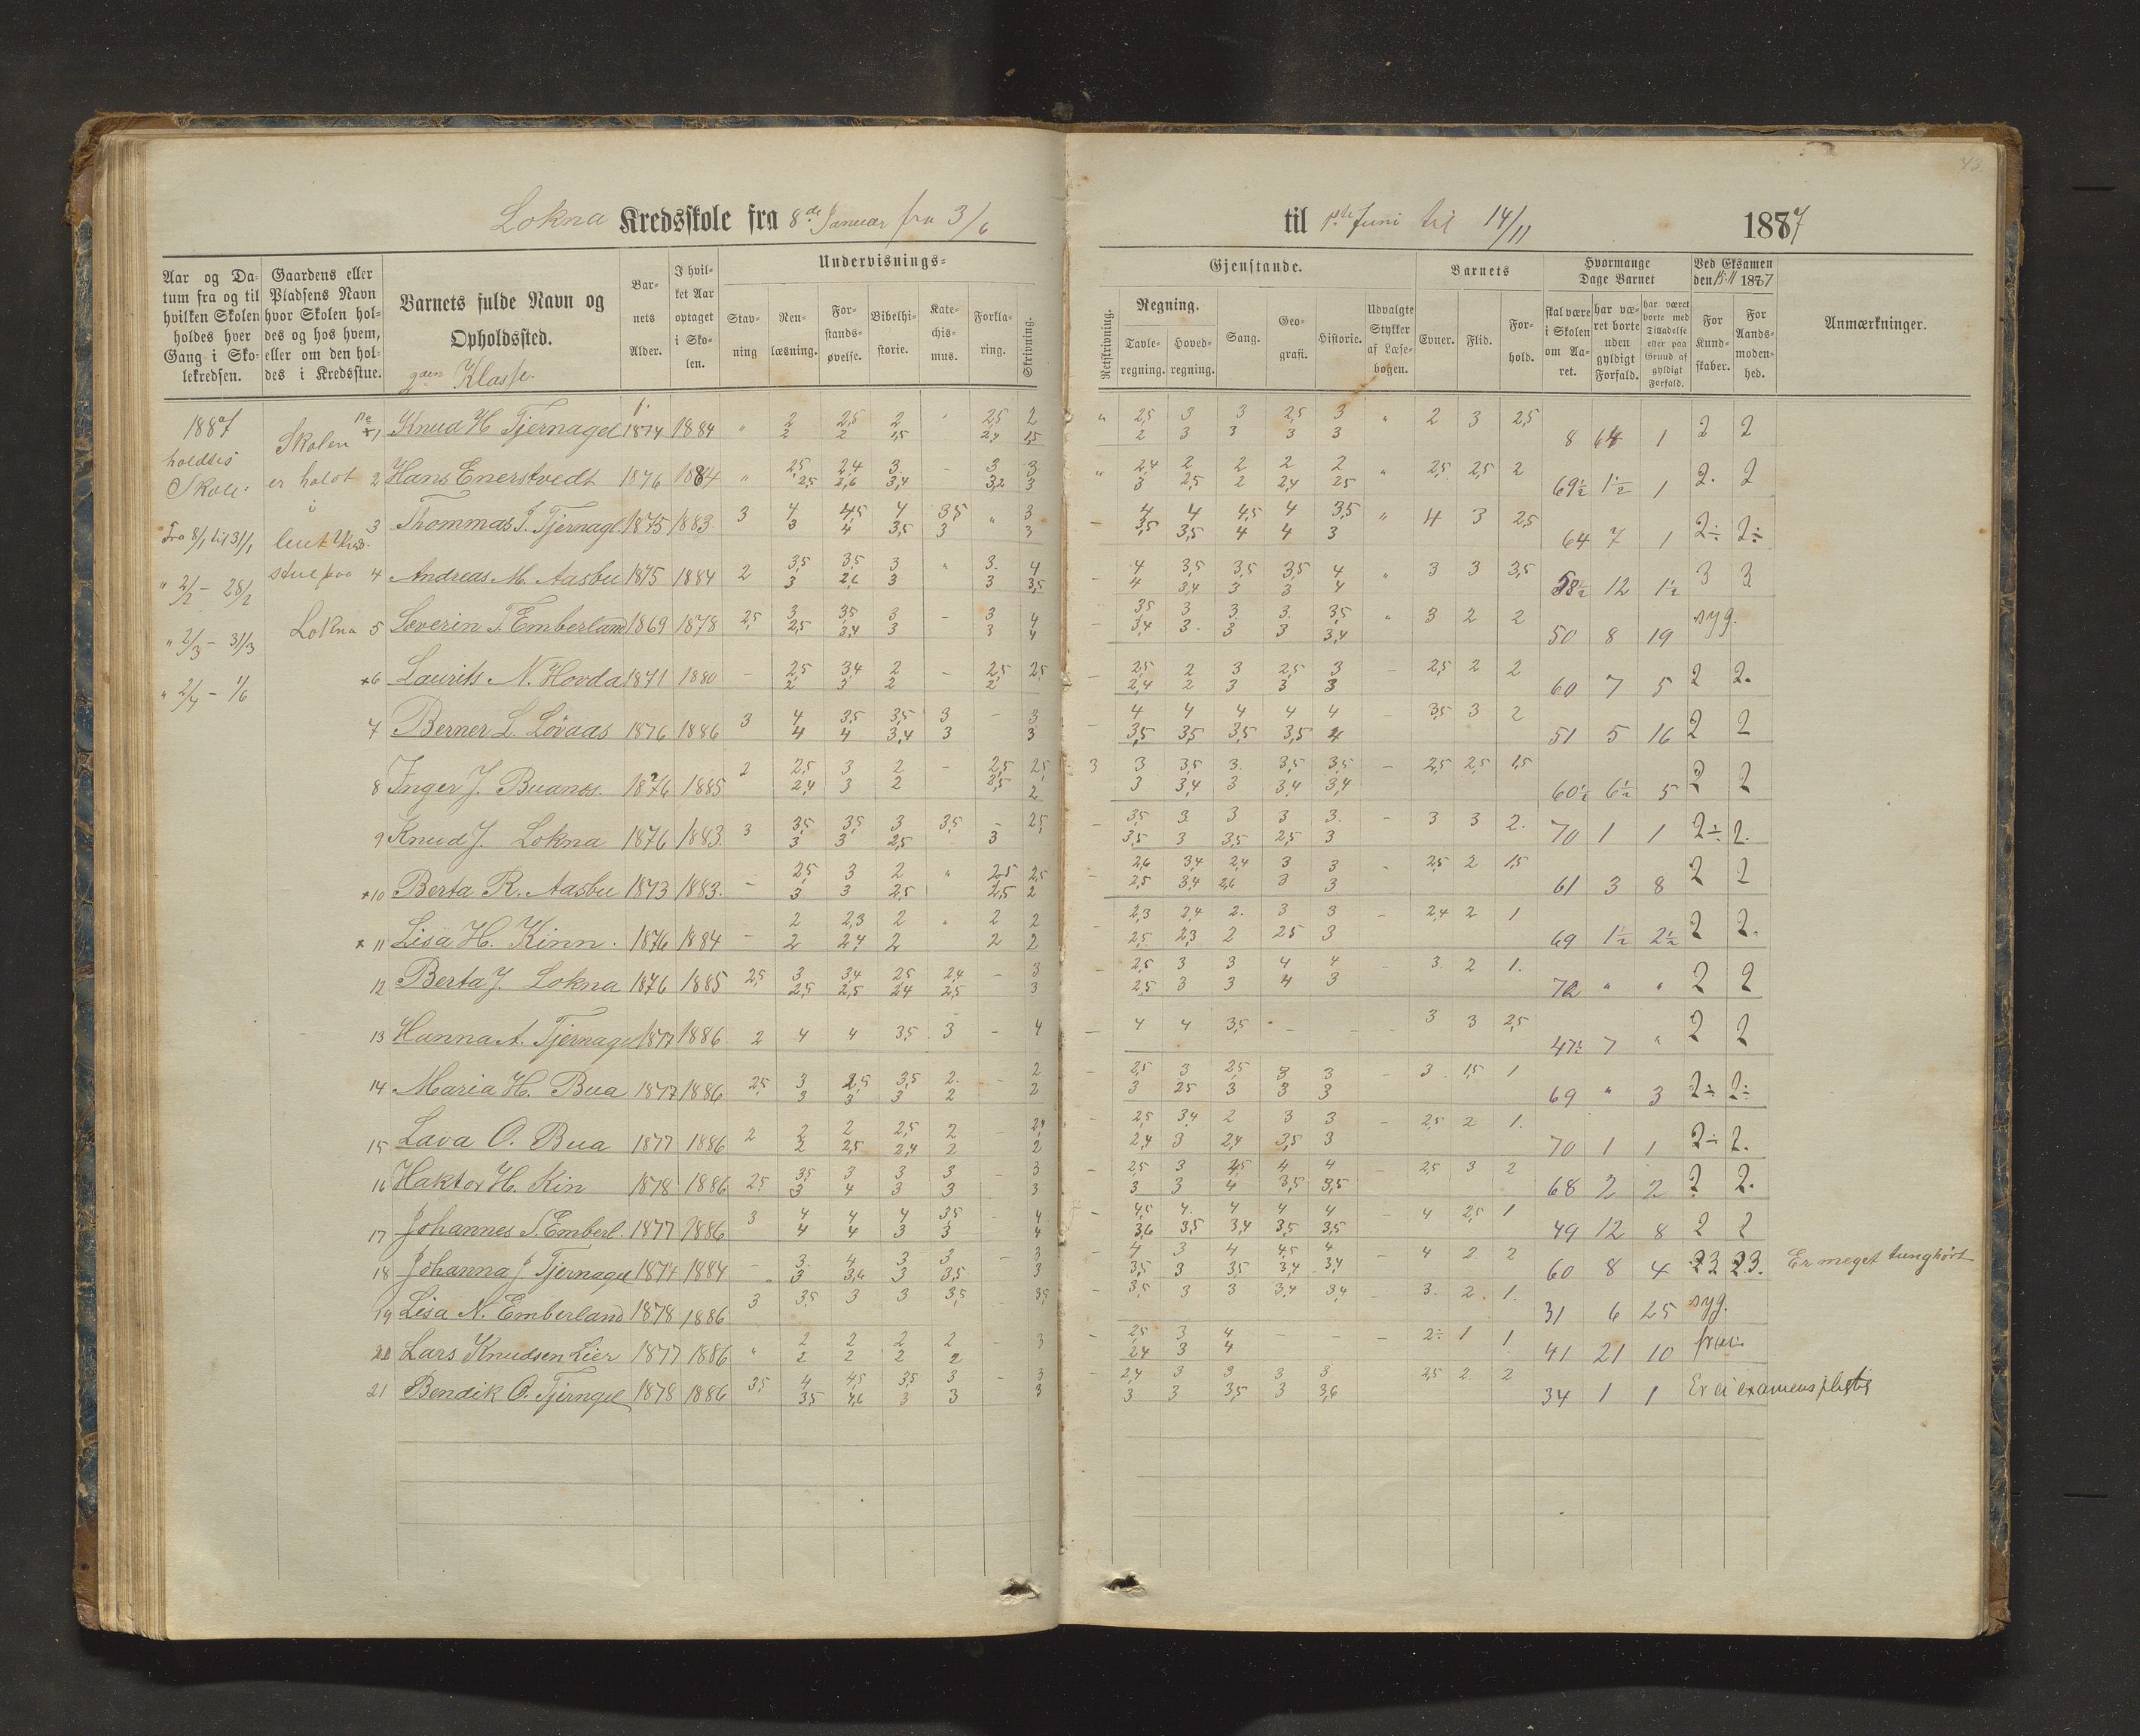 43
Lokna Kredsskole fra 8de Januar fra 3/6 til 1ste Juni til 14/11 1887
Aar og Datum fra og til hvilken Skolen holdes hver Gang i Skolekredsen.
Gaardens eller Pladsens Navn hvor Skolen holdes og hos hvem, eller om den holdes i Kredsstue.
Barnets fulde Navn og Opholdssted.
Klasse.
Barnets Alder.
I hvilket Aar optaget i Skolen.
Undervisnings-
Stavning
Renlæsning.
Forstandsøvelse.
Bibelhistorie.
Katechismus.
Forklaring.
Skrivning.
Gjenstande.
Retskrivning.
Regning.
Tavleregning.
Hovedregning.
Sang.
Geografi.
Historie.
Udvalgte Stykker af Læsebogen.
Barnets
Evner.
Flid.
Forhold.
Hvormange Dage Barnet
skal være i Skolen om Aaret.
har været borte uden gyldigt Forfald.
har været borte med Tilladelse eller paa Grund af gyldigt Forfald.
Ved Eksamen den 15-11 1887
For Kundskaber.
For Aandsmodenhed.
Anmærkninger.
1887
holdtes
Skole
Fra 8/1 til 31/1
" 2/2 - 28/2
" 2/3 - 31/3
" 2/4 - 1/6
Skolen
er holdt
i
stue paa
Lokna
1 Knud H Tjernagel 1874 1884 " 2 2,5 2 " 2,5 2 " 2,5 3 3 2,5 3 " 2 3 2,5
2 2 1,5 2,4 1,5 2 3 3 3 3 8 64 1 2 2
2 Hans Enerstvedt 1876 1884 " 2,5 2,4 3. - 3 3 " 2,4 2 2 2 2 " 2,5 2,5 2
2,5 2,6 3,4 3,2 3 3 2,5 2 2,4 2,5 69½ 1½ 1 2. 2
3 Thommas T. Tjernagl. 1875 1883. 3 4 4,5 4 3,5 " 3 - 4 4 4,5 4 3,5 " 4 3 2,5
3 4 3,5 3 3 3,5 3,5 4 4 3 64 7 1 2÷ 2÷
4 Andreas M. Aasbu 1875 1884 2 3,5 3,5 3 " 3. 4 - 4 3,5 3,5 3,5 4 " 3 3 3,5
3 2,6 3 3 3,5 4 3,4 3 3 4 58½ 12 1½ 3 3
5 Severin T. Emberland 1869 1878 2,5 3 3,5 3 - 3 4 - 3,5 3 3. 3. 3,5 " 3 2 2
2,5 3,4 3 3 4 3,4 3. 3 3 3,4 50 8 19 syg.
6 Laurits N. Hovda 1871 1880 - 2,5 3,4 2 - 2,5 2,5 - 2,5 2 3 2,5 3 - 2,5 2 2
2 3 2 2 2,4 2 3 3 3 60 7 5 2 2.
7 Berner L. Lövaas 1876 1886 3 4 3,5 3,5 3 - 3 - 4 4 4 4 4 - 3,5 3 2
4 4 3,4 3 3 3,5 3,5 3,5 3,5 4 51 5 16 2 2
8 Inger J. Buanes. 1876 1885 2 2,5 3 2 - 2,5 2,5 3 3 3,5 3. 3,5 3,5 - 2,5 2,5 1,5
2,4 3 2 2,5 2 3 3,4 3 3,4 3,4 60½ 6½ 5 2 2
9 Knud J. Lokna 1876 1883. 3 3,5 3,5 3 3,5 - 2,5 - 3,5 3 3 3 3. - 3 3 2.
3 3 2,5 3 3,5 3 3,5 2,5 3 70 1 1 2÷ 2.
10 Berta R. Aasbu 1873 1883. - 2,5 3 2 " 2,5 2,5 - 2,6 3,4 2,4 3 3 - 2,5 2 1,5
3 3 2,5 2,5 2 2,5 3,4 2,6 3 3 61 3 8 2 2
11 Lisa H. Kinn. 1876 1884 - 2 2,3 2 " 2 2 - 2,3 2,4 2. 3 3 - 2,4 2 1
2 2,4 2 2 2 2,5 2,3 2 2,5 3 69 1½ 2½ 2 2.
12 Berta J. Lokna 1876 1885 2,5 3 3,4 2,5 2,4 - 3 - 2,5 3 3 4 4 - 3. 2 1.
2,5 2,5 2,4 2,5 3 2,5 3 3 4 3 72 " " 2 2
13 Hanna A. Tjernagel 1877 1886 2 4 4 3,5 3 - 4 - 4 4 3,5 - - - - 3 3 2,5
47½ 7 " 2 2
14 Maria H. Bua 1877 1886 2,5 3 2,5 3,5 2. - 2 - 2,5 3 2,5 3 3 - 3 1,5 1
3 3 3 2 2 3 2,5 3 3 3 69 " 3 2÷ 2÷
15 Lava O. Bua 1877 1886 2 2 2 2,5 2 - 2,4 - 2,5 3,4 2 3 3 - 2,5 2 1.
2 2,5 2,4 2 2 2,4 3 2,4 3,5 3 70 1 1 2÷ 2.
16 Haktor H. Kin 1878 1886 2,5 3,5 3 3 3 - 3 - 2,5 3 3,5 4 4 - 2,5 3 2
3 4 3 3 3 3 3 4 3,5 3,5 68 2 2 2 2.
17 Johannes S. Emberl. 1877 1886 3 4 4 4 3,5 - 4 - 4,5 4. 4 4 4 - 4 2,5 1
4 4 3 3 4 3,6 3,5 3,4 3,5 3,5 49 12 8 2 2
18 Johanna J. Tjernagel 1874 1884 - 3. 4 3 3 - 3 - 4 3 4 4,5 4 - 4 2 2
3 3,6 3 3,5 3 3,5 3 3,5 3,4 3,4 60 8 4 3 3. Er meget tunghørt
19 Lisa N. Emberland 1878 1886 3 3,5 3 3 3,5 - 3,5 - 3,5 3 3 3,4 3,4 - 3. 2. 1.
31 6 25 syg.
20 Lars Knudsen Lier 1877 1886 " 2 2 2 2 - 3 - 2,5 3 4 - - - 2÷ 1 1
2 2 2 2 2,4 3 4 41 21 10
21 Bendik O. Tjerngel 1878 1886 3,5 4 4,5 3,5 3 - 3 - 2,4 3 3 3 3 2,5 2 2
3,5 4,6 3 3 3 3 3 3,5 3 3,6 34 1 1 Er ei examenspligtig